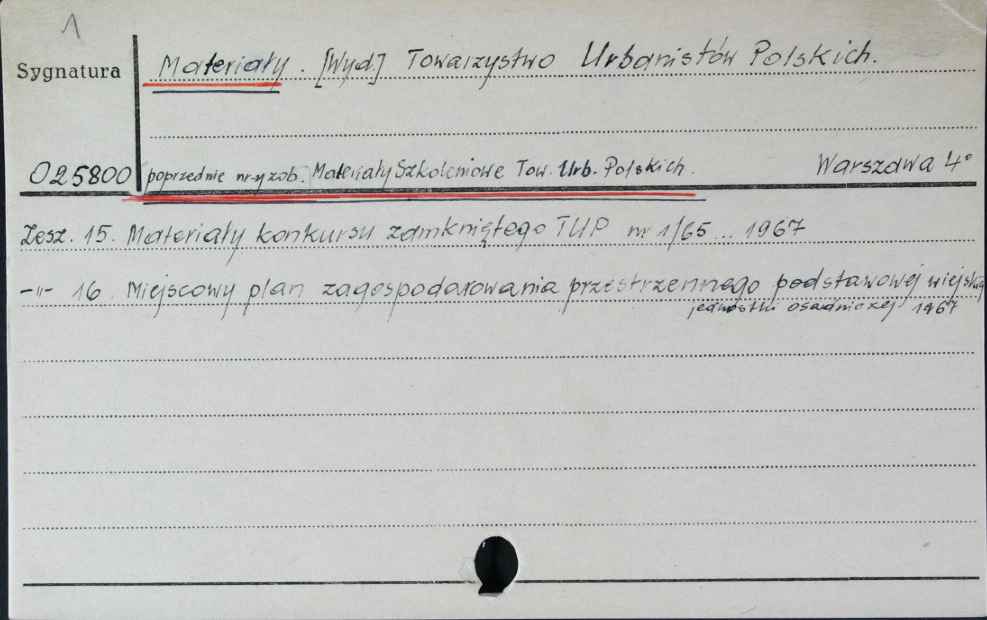 1
Sygnatura
Materiały. [Wyd.] Towarzystwo Urbanistów Polskich.
025800 poprzednie nr-y zob. Materiały Szkoleniowe Tow. Urb. Polskich. Warszawa 4°
Zesz. 15. Materiały konkursu zamkniętego TUP nr 1/65... 1967
-"- 16. Miejscowy plan zagospodarowania przestrzennego podstawowej wiejskiej
jednostki osadniczej 1967